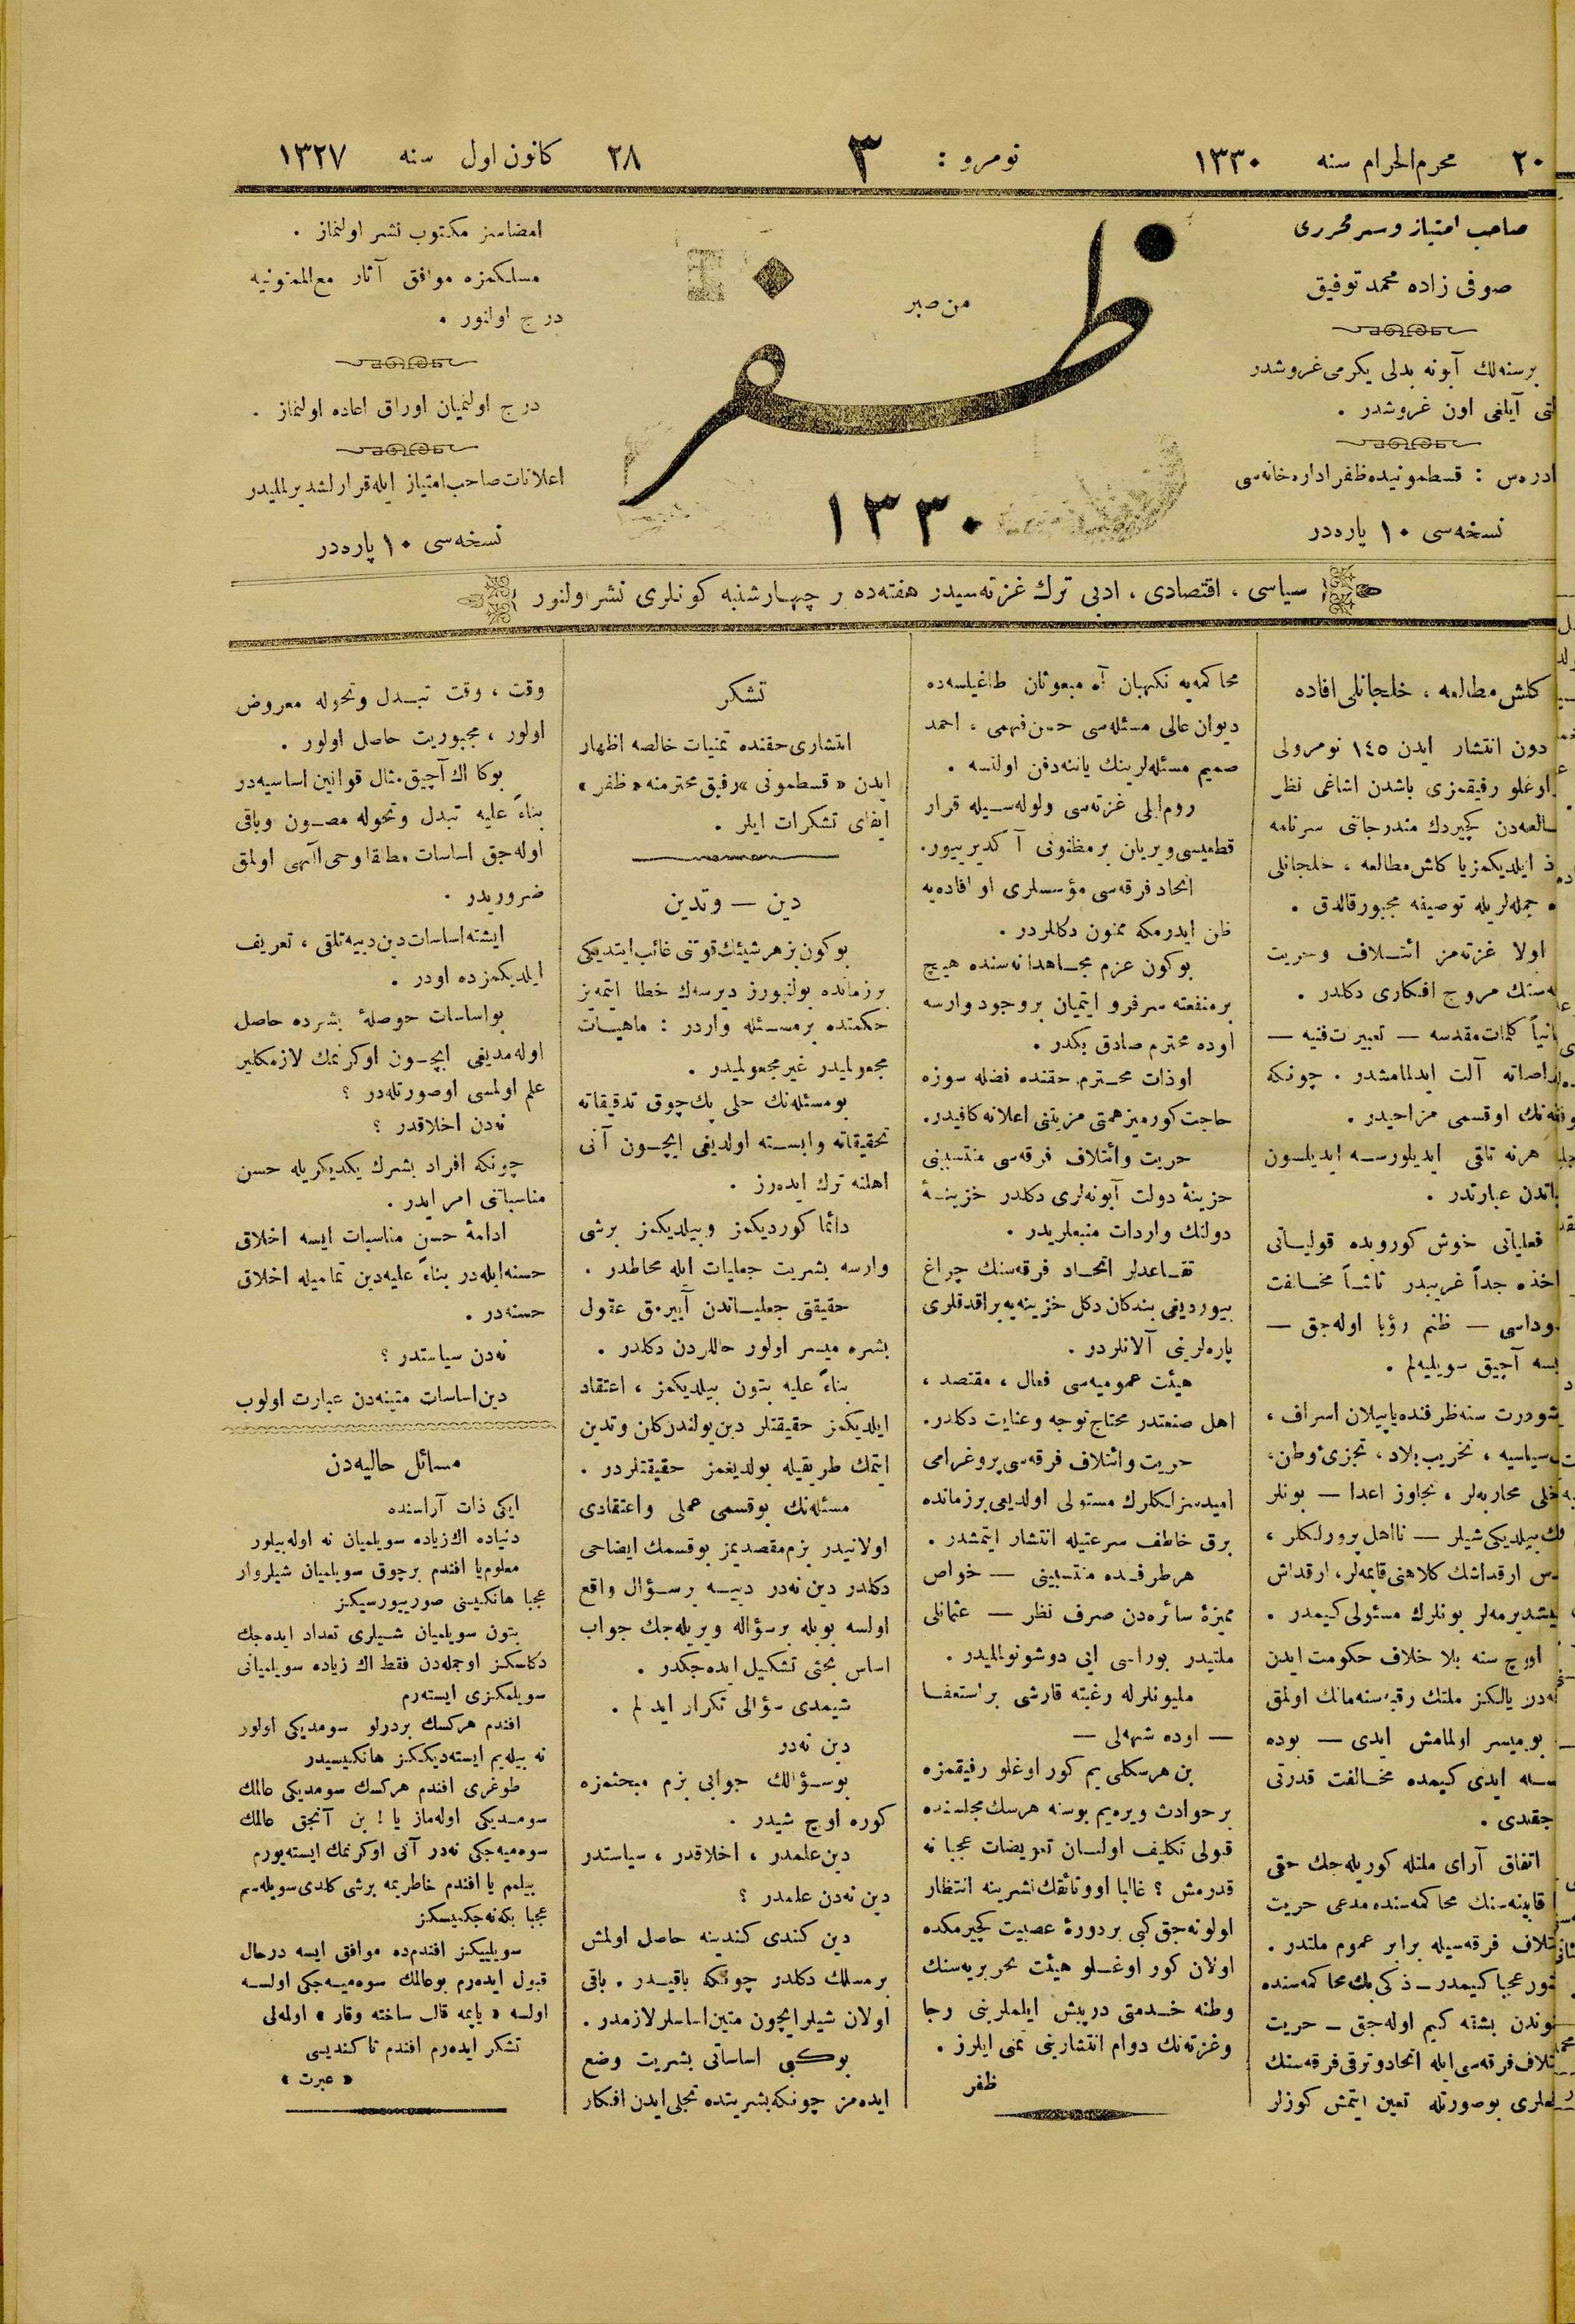 ٢٠ محرم الحرام سنه ١٣٣٠
نومرو : ٣
٢٨ كانون اول سنه ١٣٢٧
صاحب امتياز و سر محررى
صوفى زاده محمد توفيق
برسنه‌لك آبونه بدلى يكرمى غروشدر
آيلغى اون غروشدر .
ادرس : قسطمونيده ظفر اداره خانه‌سى
نسخه‌سى ١٠ پاره‌در
من صبر
ظفر
١٣٣٠
امضاسز مكتوب نشر اولنماز .
مسلكمزه موافق آثار مع الممنونيه
درج اولنور .
درج اولنميان اوراق اعاده اولنماز .
اعلانات صاحب امتياز ايله قرارلشديرلمليدر
نسخه‌سى ١٠ پاره‌در
سياسى ، اقتصادى ، ادبى ترك غزته‌سيدر هفته‌ده بر چهارشنبه كونلرى نشر اولنور
كلش مطالعه ، خلجانلى افاده
دون انتشار ايدن ١٤٥ نومرولى
اوغلو رفيقمزى باشدن اشاغى نظر
كچيردك مندرجاتنى سرنامه
ايلديكمز يا كلش مطالعه ، خلجانلى
جمله‌لريله توصيفه مجبور قالدق .
اولا غزته‌مز ائتلاف و حريت
مروج افكارى دكلدر .
كلمات مقدسه — تعبيرات فنيه —
آلت ايدلمامشدر . چونكه
او قسمى مزاحيدر .
هرنه تلقى ايديلورسه ايديلسون
عبارتدر .
فعلياتى خوش كوروبده قولياتى
اخذه جداً غريبدر ثانياً مخالفت
— ظنم رؤيا اوله‌جق —
آچيق سويليه‌لم .
درت سنه ظرفنده ياپيلان اسراف ،
سياسيه ، تخريب بلاد ، تجزى وطن ،
محاربه‌لر ، تجاوز اعدا — بونلر
بيلديكى شيلر — نااهل پرورلكلر ،
ارقداشك كلاهنى قاپمه‌لر ، ارقداش
بونلرك مسئولى كيمدر .
اوچ سنه بلا خلاف حكومت ايدن
يالكز ملتك رقبه‌سنه مالك اولمق
ميسر اولمامش ايدى — بوده
ايدى كيمده مخالفت قدرتى
جقدى .
اتفاق آراى ملتله كوريله‌جك حقى
قابينه‌سنك محاكمه‌سنده مدعى حريت
فرقه‌سيله برابر عموم ملتدر .
عجبا كيمدر — ذكى بك محاكمه‌سنده
بشقه كيم اوله‌جق — حريت
فرقه‌سى ايله اتحاد و ترقى فرقه‌سنك
بو صورتله تعين ايتمش كوزلر
محاكمه‌يه نكهبان آه مبعوثان طاغيلسه‌ده
ديوان عالى مسئله‌سى حسن فهمى ، احمد
صميم مسئله‌لرينك ياننه دفن اولنسه .
روم ايلى غزته‌سى ولوله‌سيله قرار
اتحاد فرقه‌سى مؤسسلرى او افاده‌يه
ظن ايدرمكه ممنون دكللردر .
بوكون عزم مجاهدانه‌سنده هيچ
بر منفعته سرفرو ايتميان بر وجود وارسه
اوده محترم صادق بكدر .
او ذات محترم حقنده فضله سوزه
حاجت كورميز همتى مزيتنى اعلانه كافيدر.
حريت و ائتلاف فرقه‌سى منتسبينى
خزينهٔ دولت آبونه‌لرى دكلدر خزينهٔ
دولتك واردات منبعلريدر .
تقاعدلر اتحاد فرقه‌سنك چراغ
بيورديغى بندكان دكل خزينه‌يه براقدقلرى
پاره‌لرينى آلانلردر .
هيئت عموميه‌سى فعال ، مقتصد ،
اهل صنعتدر محتاج توجه و عنايت دكلدر.
حريت و ائتلاف فرقه‌سى پروغرامى
اميدسزلكلرك مستولى اولديغى بر زمانده
برق خاطف سرعتيله انتشار ايتمشدر .
هر طرفده منتسبينى — خواص
مميزهٔ سائره‌دن صرف نظر — عثمانلى
ملتيدر بوراسى ايى دوشونولمليدر .
مليونلرله رغبته قارشى بر استعفا
— اوده شبهه‌لى —
بن هرسكلى يم كور اوغلو رفيقمزه
بر حوادث ويره‌يم بوسنه هرسك مجلسنده
قبولى تكليف اولنان تعويضات عجبا نه
قدرمش ؟ غالبا او وثائقك نشرينه انتظار
اولونه‌جق كبى بر دورهٔ عصبيت كچيرمكده
اولان كور اوغلو هيئت تحريريه‌سنك
وطنه خدمتى درپيش ايلملرينى رجا
و غزته‌نك دوام انتشارينى تمنى ايلرز .
ظفر
تشكر
انتشارى حقنده تمنيات خالصه اظهار
ايدن « قسطمونى » رفيق محترمنه « ظفر »
ايفاى تشكرات ايلر .
دين — و تدين
بوكون بز هر شيئك قوتنى غائب ايتديكى
بر زمانده بولنيورز ديرسه‌ك خطا ايتمه‌يز
حكمتده بر مسئله واردر : ماهيات
مجعولميدر غير مجعولميدر .
بو مسئله‌نك حلى پك چوق تدقيقاته
تحقيقاته وابسته اولديغى ايچون آنى
اهلنه ترك ايده‌رز .
دائما كورديكمز و بيلديكمز برشى
وارسه بشريت جعليات ايله محاطدر .
حقيقتى جعلياتدن آييرمق عقول
بشره ميسر اولور حاللردن دكلدر .
بناءً عليه بتون بيلديكمز ، اعتقاد
ايلديكمز حقيقتلر دين يولندن كلن و تدين
ايتمك طريقيله بولديغمز حقيقتلردر .
مسئله‌نك بو قسمى عملى و اعتقادى
اولانيدر بزم مقصديمز بو قسمك ايضاحى
دكلدر دين نه‌در دييه بر سؤال واقع
اولسه بويله بر سؤاله ويريله‌جك جواب
اساس بحثى تشكيل ايده‌جكدر .
شيمدى سؤالى تكرار ايده‌لم .
دين نه‌در
بو سؤالك جوابى بزم مبحثمزه
كوره اوچ شيدر .
دين علمدر ، اخلاقدر ، سياستدر
دين نه‌دن علمدر ؟
دين كندى كندينه حاصل اولمش
بر مسلك دكلدر چونكه باقيدر . باقى
اولان شيلر ايچون متين اساسلر لازمدر .
بو كبى اساساتى بشريت وضع
ايده‌مز چونكه بشريتده تجلى ايدن افكار
وقت ، وقت تبدل و تحوله معروض
اولور ، مجبوريت حاصل اولور .
بوكا اك آچيق مثال قوانين اساسيه‌در
بناءً عليه تبدل و تحولدن مصون و باقى
اوله‌جق اساسات مطلقا وحى الهى اولمق
ضروريدر .
ايشته اساسات دين دييه تلقى ، تعريف
ايلديكمزده اودر .
بو اساسات حوصلهٔ بشرده حاصل
اوله‌مديغى ايچون اوكرنمك لازمكلير
علم اولمسى او صورتله‌در ؟
نه‌دن اخلاقدر ؟
چونكه افراد بشرك يكديكريله حسن
مناسباتنى امر ايدر .
ادامهٔ حسن مناسبات ايسه اخلاق
حسنه ايله‌در بناءً عليه دين تماميله اخلاق
حسنه‌در .
نه‌دن سياستدر ؟
دين اساسات متينه‌دن عبارت اولوب
مسائل حاليه‌دن
ايكى ذات آراسنده
دنياده اك زياده سويلميان نه اوله بيلور
معلوم يا افندم برچوق سويلميان شيلر وار
عجبا هانكيسنى صورييورسيكز
بتون سويلميان شيلرى تعداد ايده‌جك
دكلسكز او جمله‌دن فقط اك زياده سويلميانى
سويلمكزى ايسته‌رم
افندم هركسك بردرلو سومديكى اولور
نه بيله‌يم ايسته‌ديككز هانكيسيدر
طوغرى افندم هركسك سومديكى عالمك
سومديكى اوله‌ماز يا ! بن آنجق عالمك
سوميه‌جكى نه‌در آنى اوكرنمك ايسته‌يورم
بيلمم يا افندم خاطريمه برشى كلدى سويله‌سم
عجبا بكه‌نه‌جكميسكز
سويلييكز افندمده موافق ايسه درحال
قبول ايده‌رم بو عالمك سوميه‌جكى اولسه
اولسه « ياپمه قالب ساخته وقار » اولمه‌لى
تشكر ايده‌رم افندم تا كنديسى
« عبرت »